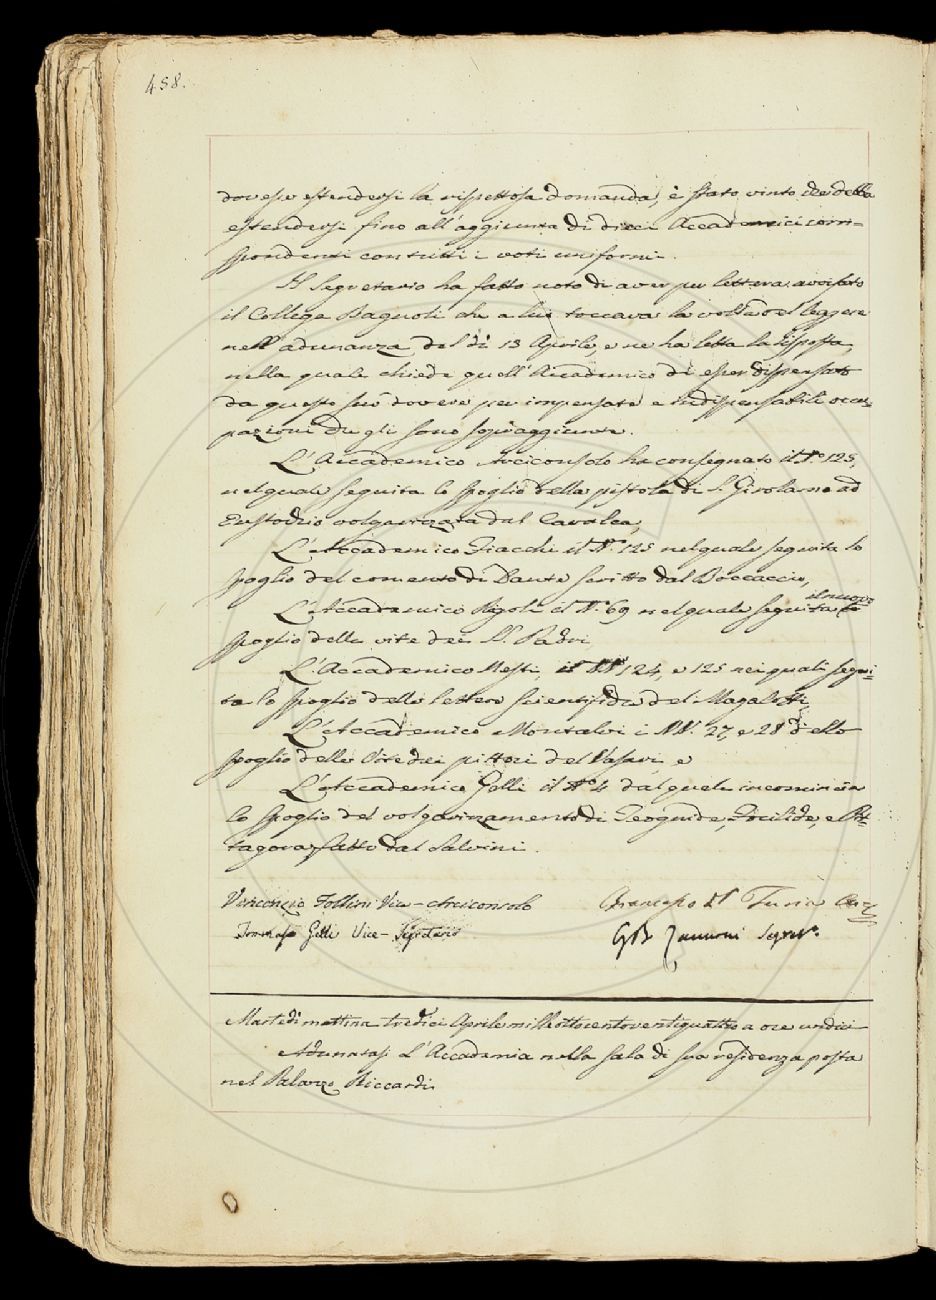 458.
dovesse estendersi la rispettosa domanda, è stato vinto che debba
estendersi fino all'aggiunta di dieci Accademici corri=
spondenti con tutti i voti uniformi.
Il Segretario ha fatto noto di aver per lettera avvisato
il Collega Bagnoli che a lui toccava la volta del leggere
nell'adunanza del dì 13 Aprile, e ne ha letta la risposta,
nella quale chiede quell'Accademico di esser dispensato
da questo suo dovere per impensate e indispensabili occu=
pazioni che gli sono sopraggiunte.
L'Accademico Arciconsolo ha consegnato il N.° 125,
nel quale seguita lo spoglio della pistola di S. Girolamo ad
Eustochio volgarizzata dal Cavalca,
L'Accademico Fiacchi il N.° 125 nel quale seguita lo
spoglio del comento di Dante scritto dal Boccaccio,
L'Accademico Rigoli il N.° 69 nel quale seguita il nuovo
spoglio delle vite dei SS. Padri
L'Accademico Nesti, i NN.i 124, e 125 nei quali segui=
ta lo spoglio delle lettere scientifiche del Magalotti,
L'Accademico Montalvi i NN.i 27, e 28 dello
spoglio delle Vite dei pittori del Vasari e
L'Accademico Gelli il N.° 4 dal quale incomincia
lo spoglio del volgarizzamento di Teognide, Focilide, e Pit=
tagora, fatto dal Salvini.
Vincenzio Follini Vice-Arciconsolo
Francesco Del Furia
Tommaso Gelli Vice-Segretario
GB Zannoni Segret.°
Martedì mattina tredici Aprile mille ottocento ventiquattro a ore undici
Adunatasi L'Accademia nella sala di sua residenza posta
nel Palazzo Riccardi